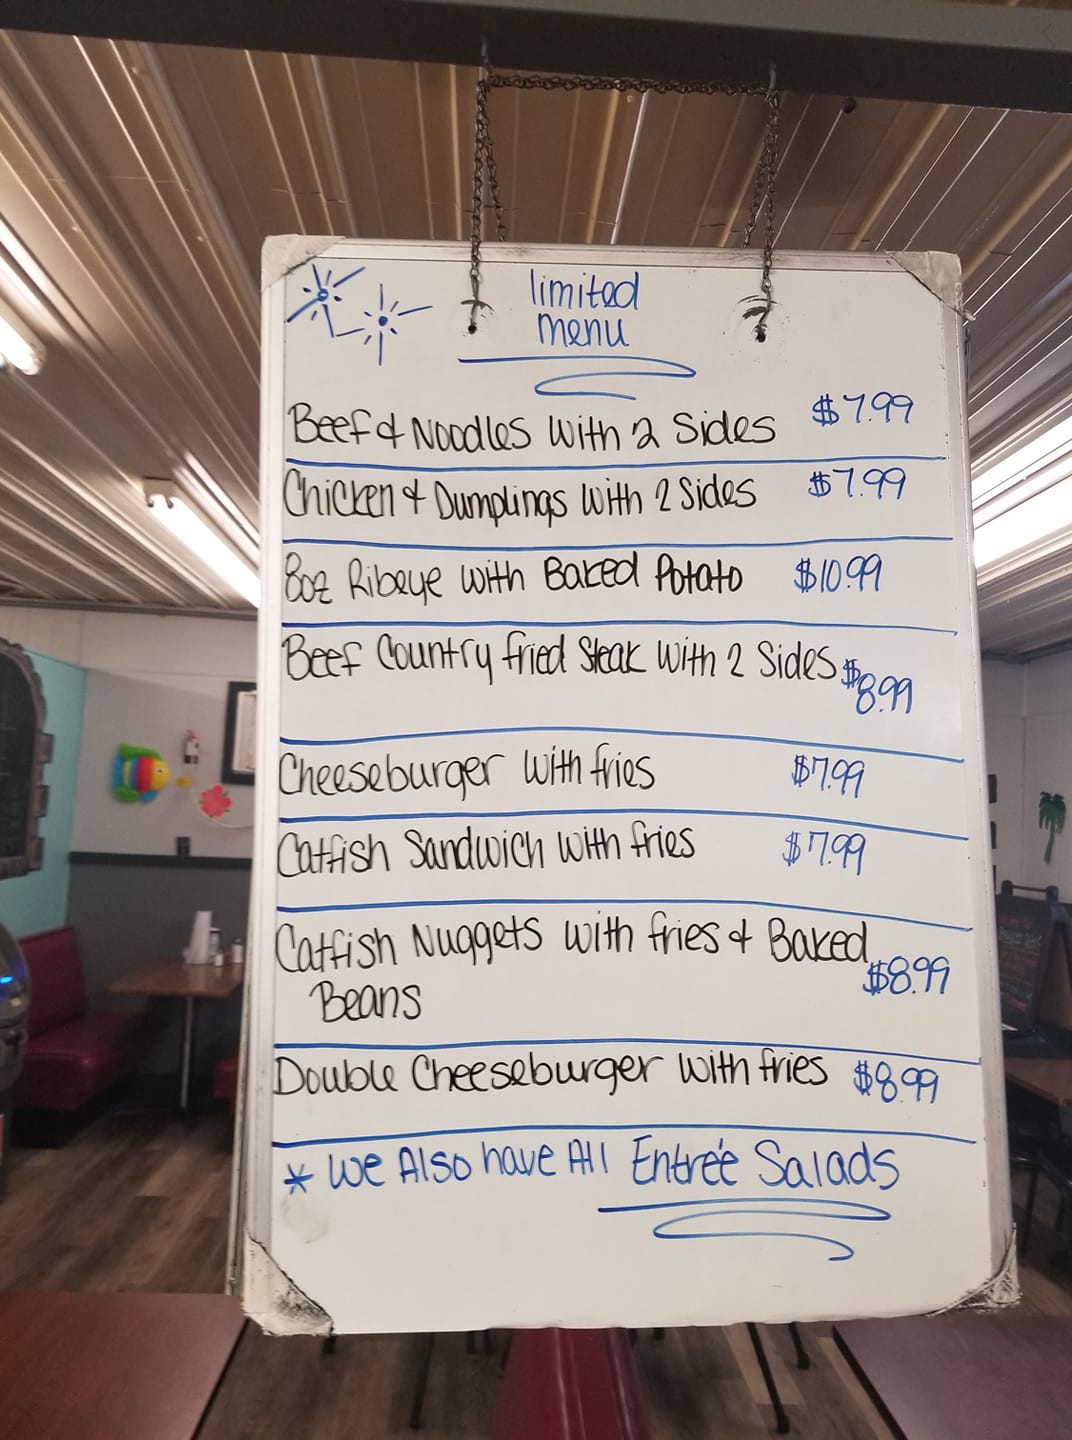 limited
menu
Beef & Noodles with 2 Sides $7.99
Chicken & Dumplings with 2 Sides $7.99
8oz Ribeye with Baked Potato $10.99
Beef Country fried Steak with 2 Sides $8.99
Cheeseburger with fries $7.99
Catfish Sandwich with fries $7.99
Catfish Nuggets with fries & Baked $8.99
Beans
Double Cheeseburger with fries $8.99
* We Also have All Entreé Salads